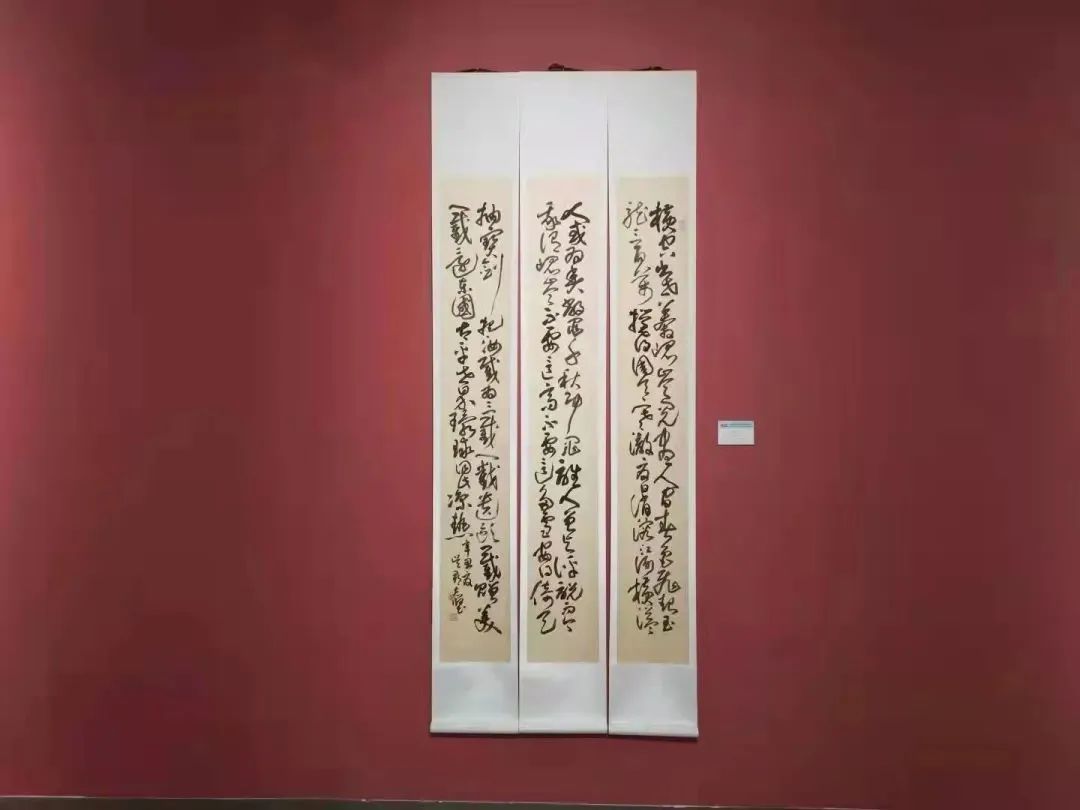 横空出世莽崑崙阅尽人间春色飛起玉
龙三百万搅得周天寒澈夏日消溶江河横溢
人或为鱼鳖千秋功罪谁人曾与评说而今
我谓崑崙不要这高不要这多雪安得倚天
抽寶劍把汝裁为三截一截遗欧一截赠美
一截还东國太平世界环球同此凉热
辛丑夏